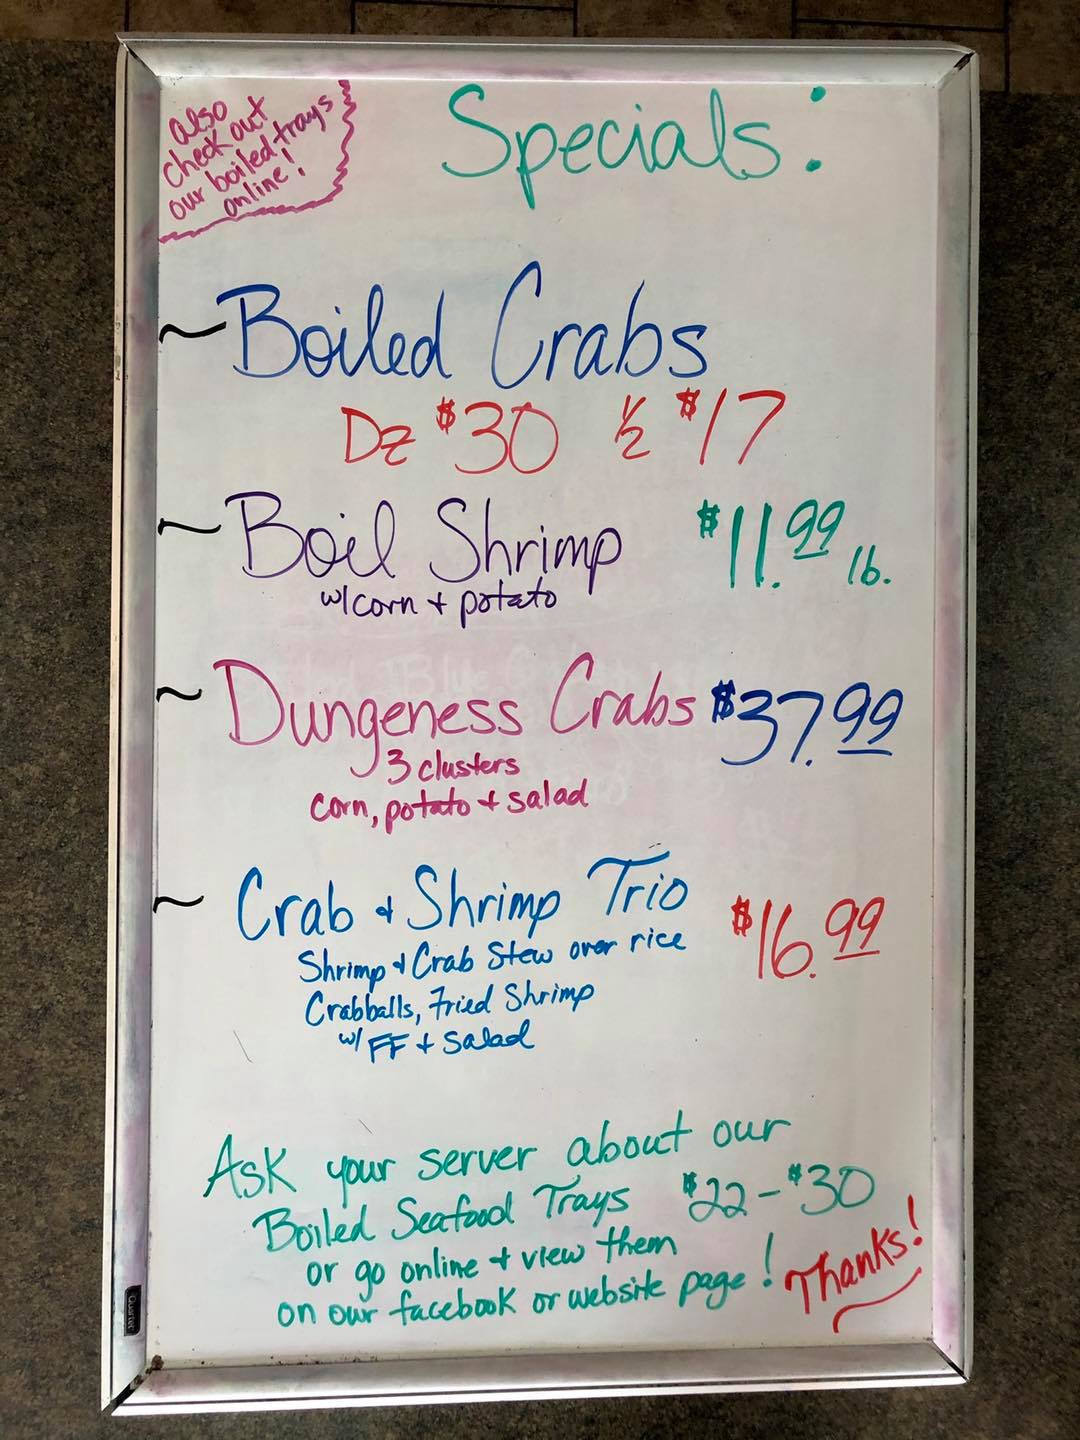 also
check out
our boiled trays
online!
Specials:
~ Boiled Crabs
Dz $30 ½ $17
~ Boil Shrimp $11.99 lb.
w/corn + potato
~ Dungeness Crabs $37.99
3 clusters
corn, potato + salad
~ Crab + Shrimp Trio $16.99
Shrimp + Crab Stew over rice
Crabballs, Fried Shrimp
w/ FF + Salad
Ask your server about our
Boiled Seafood Trays $22 - $30
or go online + view them
on our facebook or website page!
Thanks!
Quartet